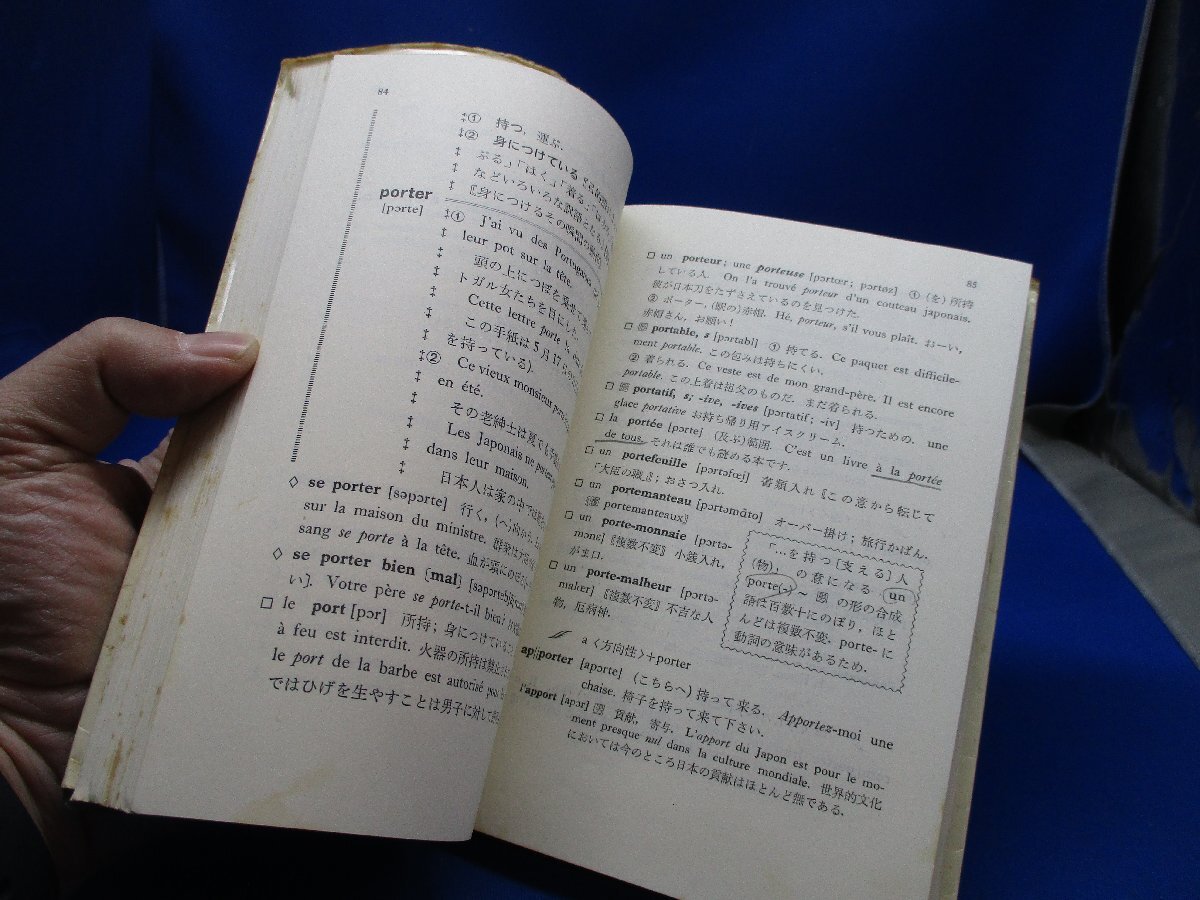 84
porter
[pɔrte]
‡① 持つ, 運ぶ.
‡② 身につけている
‡ ぶる」「はく」「着る」
‡ などいろいろな訳語となる
‡ 〖身につけるその瞬間の
‡① J'ai vu des Portugaises
‡ leur pot sur la tête.
頭の上につぼを乗せて
‡ トガル女たちを目にした.
Cette lettre porte
‡ この手紙は5月17
‡ を持っている).
‡② Ce vieux monsieur
‡ en été.
‡ その老紳士は夏でも
‡ Les Japonais ne
‡ dans leur maison.
‡ 日本人は家の中では
◇ se porter [səpɔrte] 行く, (へ)向から
sur la maison du ministre. 群衆は
sang se porte à la tête. 血が頭に
◇ se porter bien [mal]
い]. Votre père se porte-t-il bien?
□ le port [pɔr] 所持; 身につけている
à feu est interdit. 火器の所持は禁止
le port de la barbe est autorisé
ではひげを生やすことは男子に対して
85
□ un porteur; une porteuse [pɔrtœr; pɔrtøz] ① (を)所持
している人. On l'a trouvé porteur d'un couteau japonais.
彼が日本刀をたずさえているのを見つけた.
② ポーター, (駅の)赤帽. Hé, porteur, s'il vous plaît. おーい,
赤帽さん, お願い!
□ 形 portable, s [pɔrtabl] ① 持てる. Ce paquet est difficile-
ment portable. この包みは持ちにくい.
② 着られる. Ce veste est de mon grand-père. Il est encore
portable. この上着は祖父のものだ. まだ着られる.
□ 形 portatif, s; -ive, -ives [pɔrtatif; -iv] 持つための. une
glace portative お持ち帰り用アイスクリーム.
□ la portée [pɔrte] (及ぶ)範囲. C'est un livre à la portée
de tous. それは誰でも読める本です.
□ un portefeuille [pɔrtəfœj] 書類入れ〖この意から転じて
「大臣の職」; おさつ入れ.
□ un portemanteau [pɔrtəmɑ̃to] オーバー掛け; 旅行かばん.
〖複 portemanteaux〗
□ un porte-monnaie [pɔrtə-
mɔnɛ]〖複数不変〗小銭入れ,
がま口.
□ un porte-malheur [pɔrtə-
malœr]〖複数不変〗不吉な人
物, 厄病神.
「…を持つ[支える]人
(物)」の意になる un
porte(-)～ 形の合成
語は百数十にのぼり, ほと
んどは複数不変. porte- に
動詞の意味があるため.
a〈方向性〉+porter
ap|porter [apɔrte] (こちらへ)持って来る. Apportez-moi une
chaise. 椅子を持って来て下さい.
l'apport [apɔr] 男 貢献, 寄与. L'apport du Japon est pour le mo-
ment presque nul dans la culture mondiale. 世界的文化
においては今のところ日本の貢献はほとんど無である.